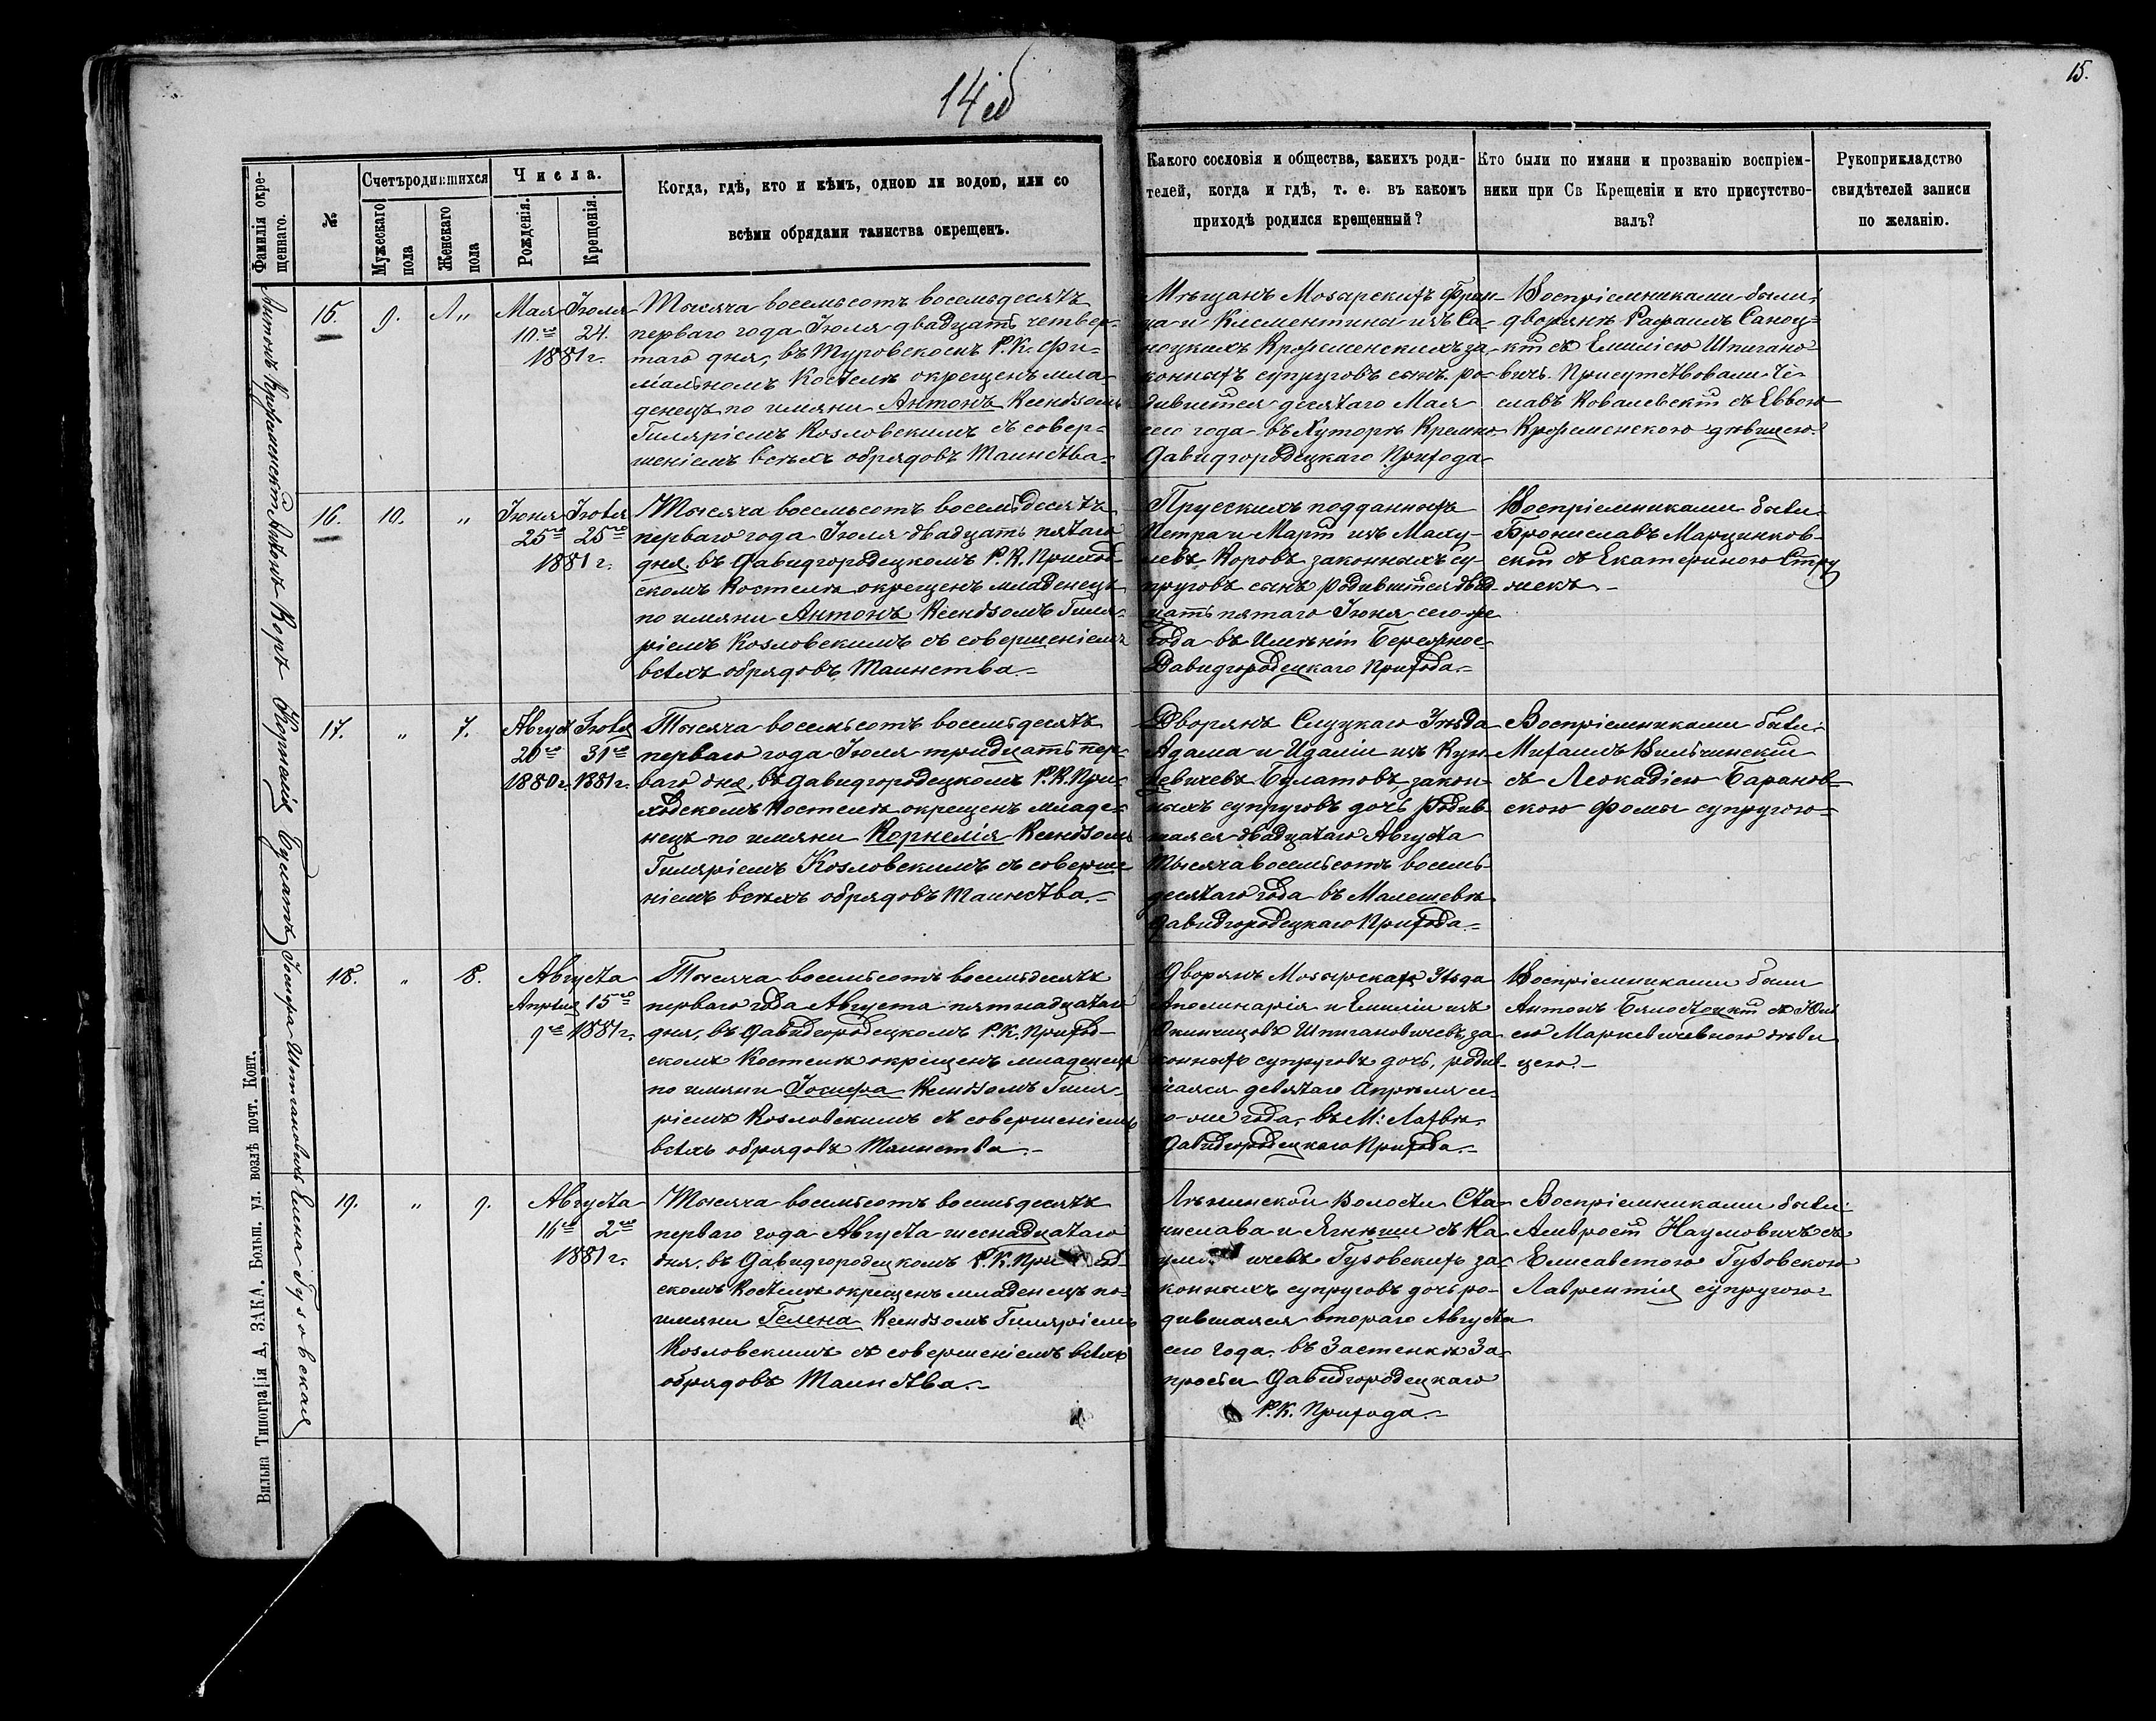 14 об
15.
Фамилія окре-
щеннаго.
№
Счетъ родившихся
Мужескаго
пола
Женскаго
пола
Числа.
Рожденія.
Крещенія.
Когда, гдѣ, кто и кѣмъ, одною ли водою, или со
всѣми обрядами таинства окрещенъ.
Какого сословія и общества, какихъ роди-
телей, когда и гдѣ, т. е. въ какомъ
приходѣ родился крещенный?
Кто были по имяни и прозванію воспріем-
ники при Св Крещеніи и кто присутство-
валъ?
Рукоприкладство
свидѣтелей записи
по желанію.
Антонъ
15.
9.
Мая Іюля
10.го 24.
1881 г.
Тысяча восемьсотъ восемьдесятъ
перваго года Іюля двадцать четвер-
таго дня, въ Туровскомъ Р. К. Фи-
ліальномъ Костелѣ окрещенъ мла-
денецъ по имяни Антонъ Ксендзомъ
Гиляріемъ Козловскимъ съ совер-
шеніемъ всѣхъ обрядовъ Таинства
Мѣщанъ Мозырскихъ Фран-
ца и Клементины изъ Са-
ноцкихъ за-
конныхъ супруговъ сынъ ро-
дившійся десятаго Мая
сего года въ Хуторѣ
Давидгородецкаго Прихода
Воспріемниками были:
дворянѣ Рафаилъ Саноц-
кій съ Емиліею Шпигано-
вичъ. Присутствовали Че-
славъ Ковалевскій съ Еввою
дѣвицею.
Антонъ Корѣ
16.
10.
"
Іюня Іюля
25го 25го
1881 г.
Тысяча восемьсотъ восемьдесятъ
перваго года Іюля двадцать пятаго
дня, въ Давидгородецкомъ Р. К. Приход-
скомъ Костелѣ окрещенъ младенецъ
по имяни Антонъ Ксендзомъ Гиля-
ріемъ Козловскимъ съ совершеніемъ
всѣхъ обрядовъ Таинства.
Прусскихъ подданныхъ
Петра и Марти изъ
Коровъ законныхъ су-
пруговъ сынъ родившійся двад-
цать пятаго Іюня сего-же
года въ Имѣніи Бережное
Давидгородецкаго Прихода.
Воспріемниками были
Брониславъ Марцинков-
скій съ Екатериною
Корнелія Булатъ
17.
"
7.
Август Іюля
20го 31го
1880 г. 1881 г.
Тысяча восемьсотъ восемьдесятъ
перваго года Іюля тридцать пер-
ваго дня, въ Давидгородецкомъ Р. К. При-
ходскомъ Костелѣ окрещенъ младе-
нецъ по имяни Корнелія Ксендзомъ
Гиляріемъ Козловскимъ съ соверше-
ніемъ всѣхъ обрядовъ Таинства.
Дворянъ Слуцкаго Уѣзда
Адама и Идаліи изъ Кун-
цевичевъ Булатовъ, закон-
ныхъ супруговъ дочь родив-
шаяся двадцатаго Августа
Тысяча восемьсотъ восемь-
десятаго года въ Малешевѣ
Давидгородецкаго Прихода.
Воспріемниками были:
Михаилъ Вильчинскій
съ Леокадіею Баранов-
скою Фомы супругою
Іосифа Шпигановичъ
18.
"
8.
Августа
Апрѣля 15го
9го 1881 г.
Тысяча восемьсотъ восемьдесятъ
перваго года Августа пятнадцатаго
дня, въ Давидгородецкомъ Р. К. Приход-
скомъ Костелѣ окрещенъ младенецъ
по имяни Іосифа Ксендзомъ Гиля-
ріемъ Козловскимъ съ совершеніемъ
всѣхъ обрядовъ Таинства.
Дворянъ Мозырскаго Уѣзда
Аполинарія и Емиліи изъ
Окинчицовъ Шпигановичевъ, за-
конныхъ супруговъ дочь, родив-
шаяся девятаго Апрѣля се-
го-же года, въ М: Лахвѣ,
Давидгородецкаго Прихода.
Воспріемниками были
Антонъ Бялостоцкій съ Юлі
ею Маркевичевною дѣви
цею.
Елена Гузовская
19.
"
9.
Августа
16го 2го
1881 г.
Тысяча восемьсотъ восемьдесятъ
перваго года Августа шеснадцатаго
дня, въ Давидгородецкомъ Р. К. Приход-
скомъ Костелѣ окрещенъ младенецъ по
имяни Гелена Ксендзомъ Гиляріемъ
Козловскимъ съ совершеніемъ всѣхъ
обрядовъ Таинства.
Лѣнинской Волости Ста-
нислава и съ На-
умовичевъ Гузовскихъ за-
конныхъ супруговъ дочь ро-
дившаяся втораго Августа
сего года, въ Застенкѣ За-
Давидгородецкаго
Р. К. Прихода.
Воспріемниками были:
Амвросій Наумовичъ съ
Елисаветою Гузовскою
Лаврентія супругою
Вильна Типографія А, ЗАКА. Больш. ул. возлѣ почт. Конт.